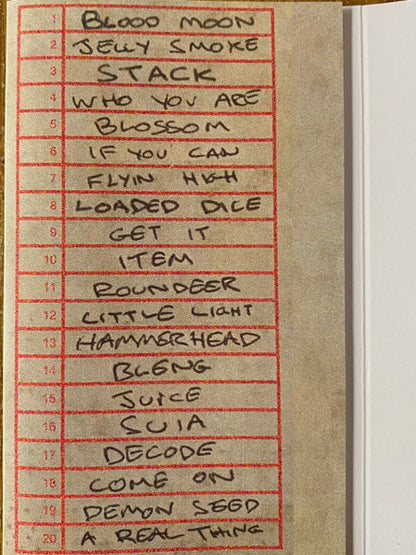 1 BLOOD MOON
2 JELLY SMOKE
3 STACK
4 WHO YOU ARE
5 BLOSSOM
6 IF YOU CAN
7 FLYIN HIGH
8 LOADED DICE
9 GET IT
10 ITEM
11 ROUNDEER
12 LITTLE LIGHT
13 HAMMERHEAD
14 BLENG
15 JUICE
16 SUIA
17 DECODE
18 COME ON
19 DEMON SEED
20 A REAL THING